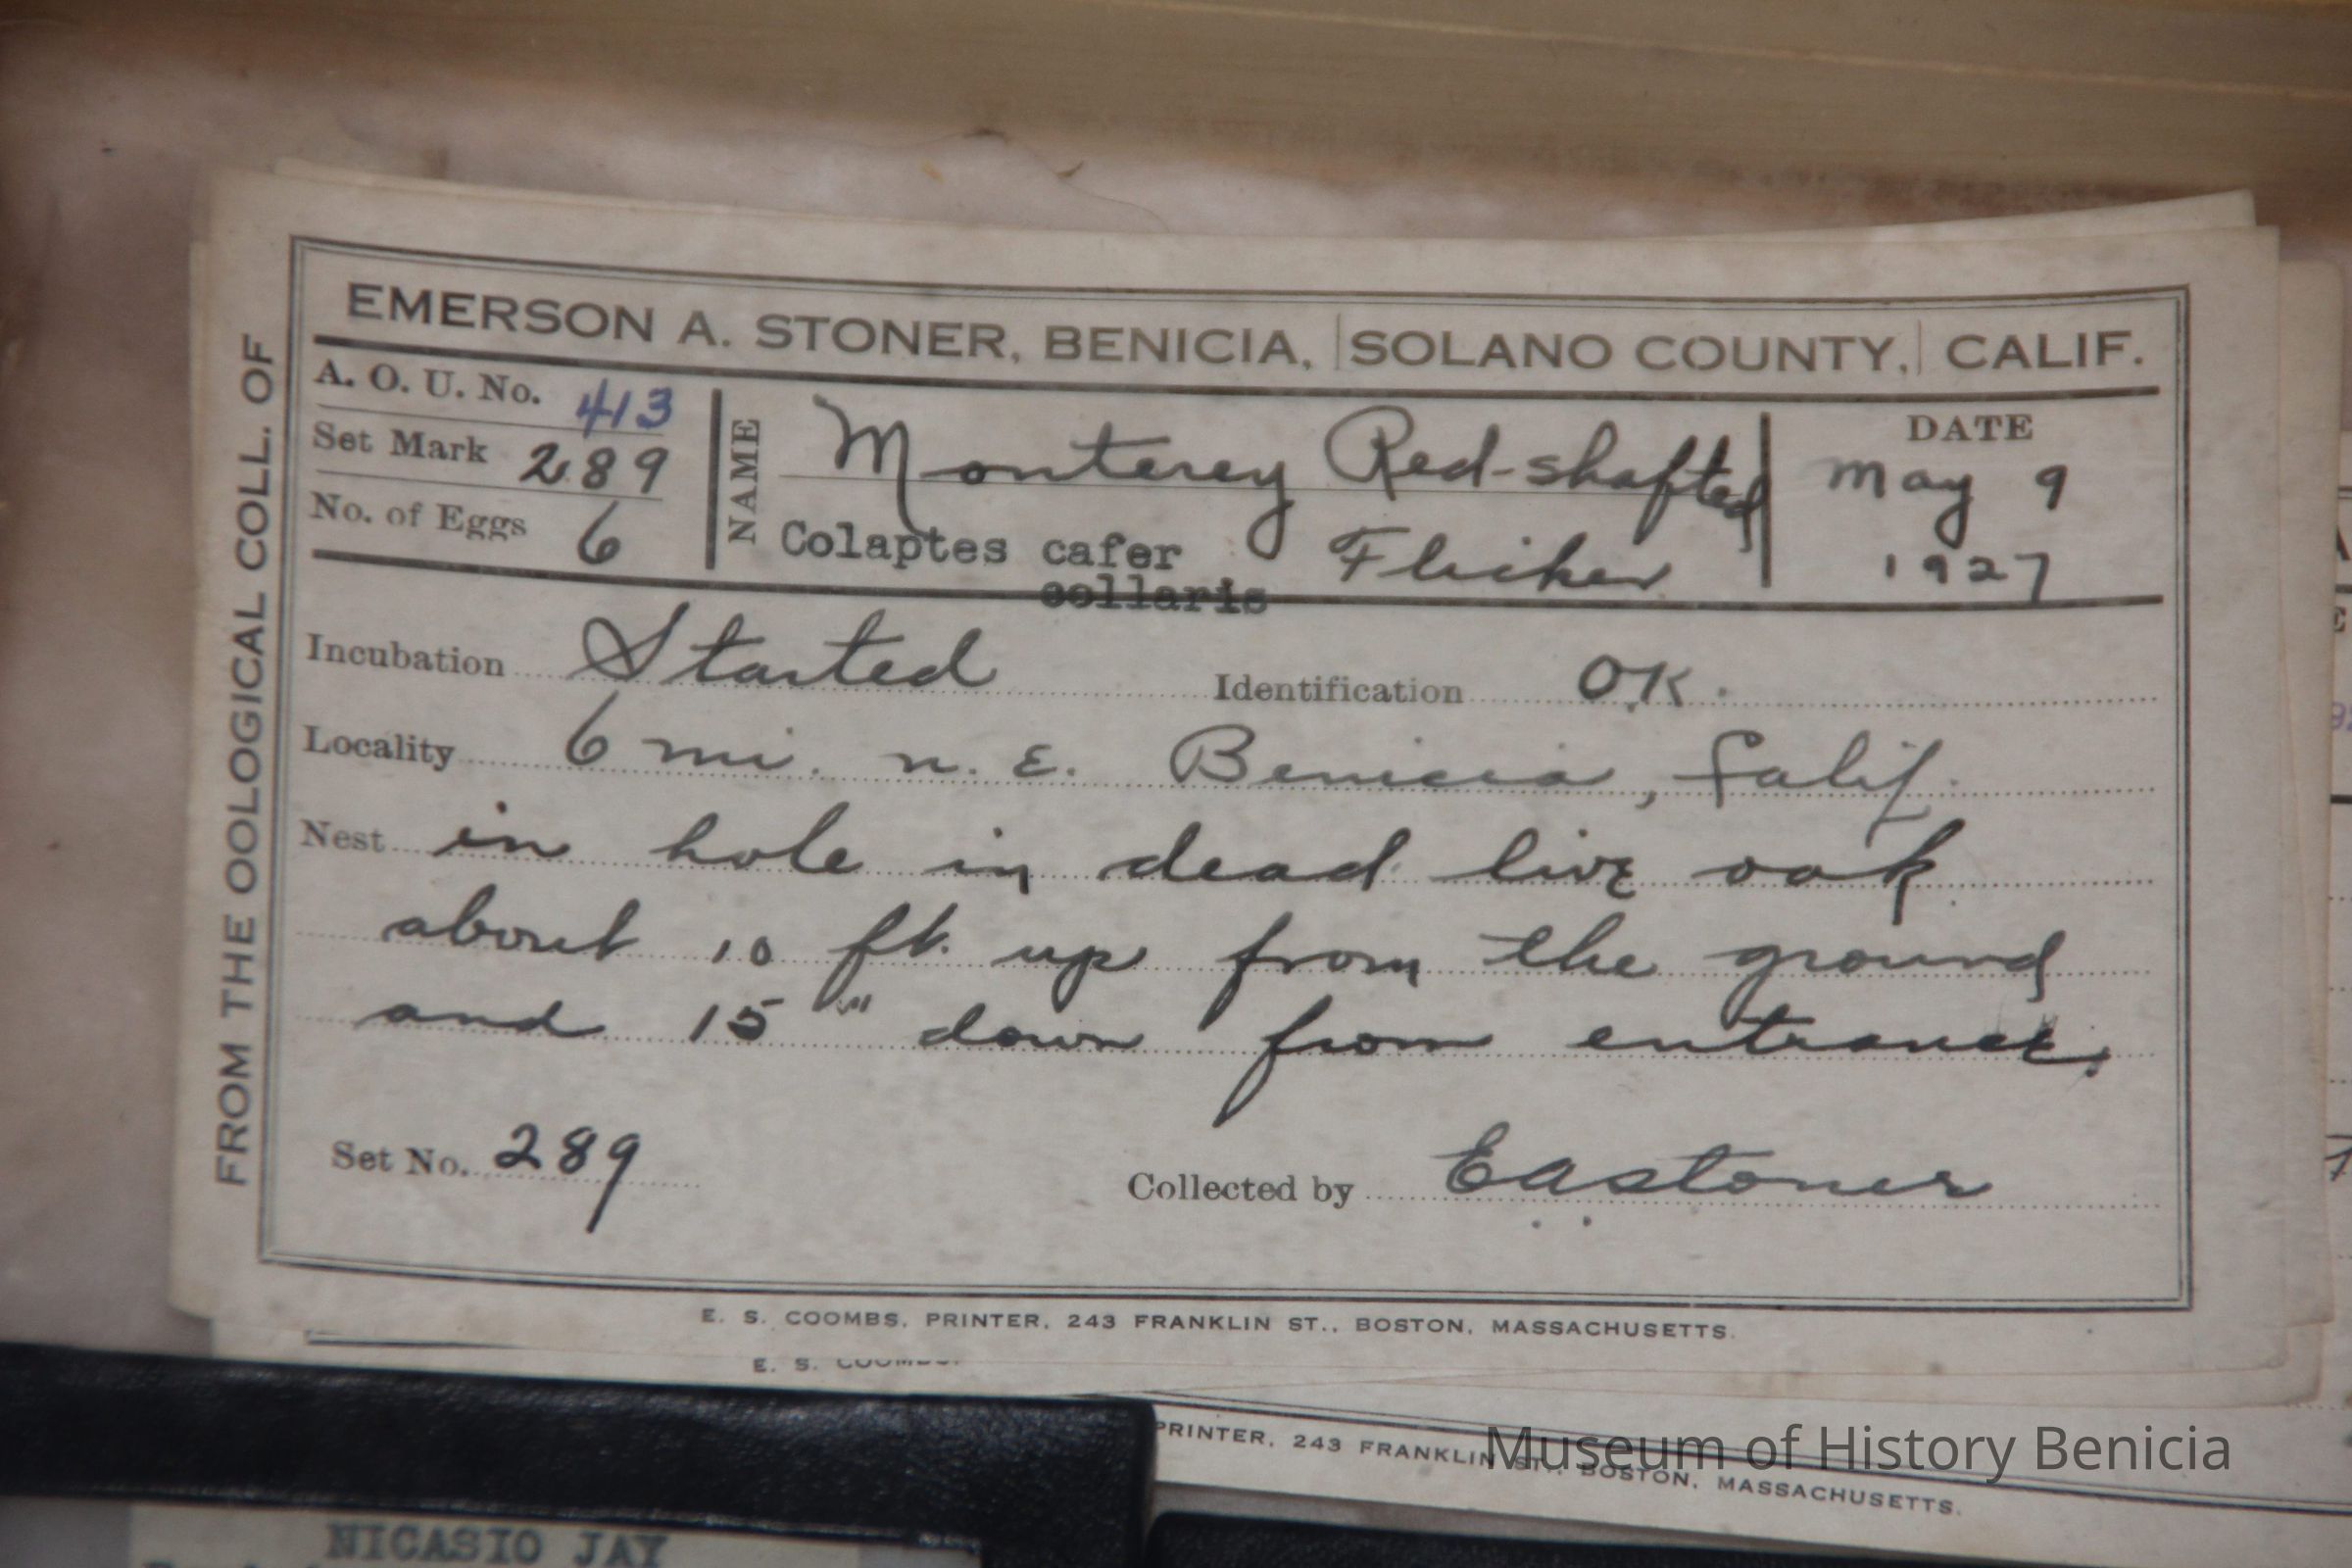 FROM THE OOLOGICAL COLL. OF
EMERSON A. STONER, BENICIA, SOLANO COUNTY, CALIF.
A. O. U. No. 413
Set Mark 289
No. of Eggs 6
NAME
Monterey Red-shafted
Colaptes cafer Flicker
collaris
DATE
May 9
1927
Incubation Started Identification OK.
Locality 6 mi. n. E. Benicia, Calif.
Nest in hole in dead live oak
about 10 ft. up from the ground
and 15" down from entrance.
Set No. 289 Collected by EAStoner
E. S. COOMBS, PRINTER, 243 FRANKLIN ST., BOSTON, MASSACHUSETTS.
E. S. COOMBS,
PRINTER, 243 FRANKLIN ST., BOSTON, MASSACHUSETTS.
Museum of History Benicia
NICASIO JAY